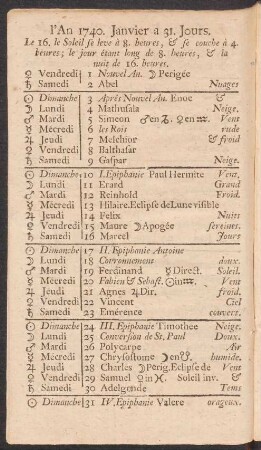 l'An 1740. Janvier a 31. Jours.
Le 16. le Soleil se leve à 8. heures, & se couche à 4
heures; le jour étant long de 8. heures, & la
nuit de 16. heures.
♀ Vendredi 1 Nouvel An. ☽ Perigée
♄ Samedi 2 Abel Nuages
☉ Dimanche 3 Après Nouvel An. Enoc &
☽ Lundi 4 Mathusala Neige.
♂ Mardi 5 Simeon ♂ en ♑, ♀ en ♒. Vent
☿ Mécredi 6 les Rois rude
♃ Jeudi 7 Melchior &
♀ Vendredi 8 Balthasar froid
♄ Samedi 9 Gaspar Neige.
☉ Dimanche 10 I. Epiphanie Paul Hermite Vent,
☽ Lundi 11 Erard Grand
♂ Mardi 12 Reinhold Froid.
☿ Mécredi 13 Hilaire. Eclipse de Lune visible
♃ Jeudi 14 Felix Nuits
♀ Vendredi 15 Maure ☽ Apogée sereines.
♄ Samedi 16 Marcel Jours
☉ Dimanche 17 II. Epiphanie Antoine
☽ Lundi 18 Couronnement doux.
♂ Mardi 19 Ferdinand ☿ Direct. Soleil.
☿ Mécredi 20 Fabien & Sebast. ☉ in ♒. Vent
♃ Jeudi 21 Agnes ♃ Dir. froid.
♀ Vendredi 22 Vincent Ciel
♄ Samedi 23 Emérence couvert.
☉ Dimanche 24 III. Epiphanie Timothee Neige.
☽ Lundi 25 Conversion de St. Paul Doux.
♂ Mardi 26 Polycarpe Air
☿ Mécredi 27 Chrysostome ☽ en ☋. humide.
♃ Jeudi 28 Charles ☽ Périg. Eclipse de Vent
♀ Vendredi 29 Samuel ♀ in ♓. Soleil inv. &
♄ Samedi 30 Adelgonde Tems
☉ Dimanche 31 IV. Epiphanie Valere orageux.